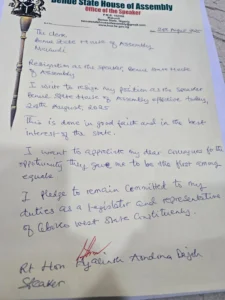 Benue State House of Assembly
Office of the Speaker
24th August, 2025
The Clerk
Benue State House of Assembly
Makurdi
Resignation as the Speaker, Benue State House
of Assembly
I write to resign my position as the Speaker
Benue State House of Assembly effective today,
24th August, 2025
This is done in good faith and in the best
interest of the state.
I want to appreciate my dear Colleagues for the
opportunity they gave me to be the first among
equals
I pledge to remain Committed to my
duties as a Legislator and representative
of Gboko West State Constituency.
Rt Hon Aondona Dajoh
Speaker